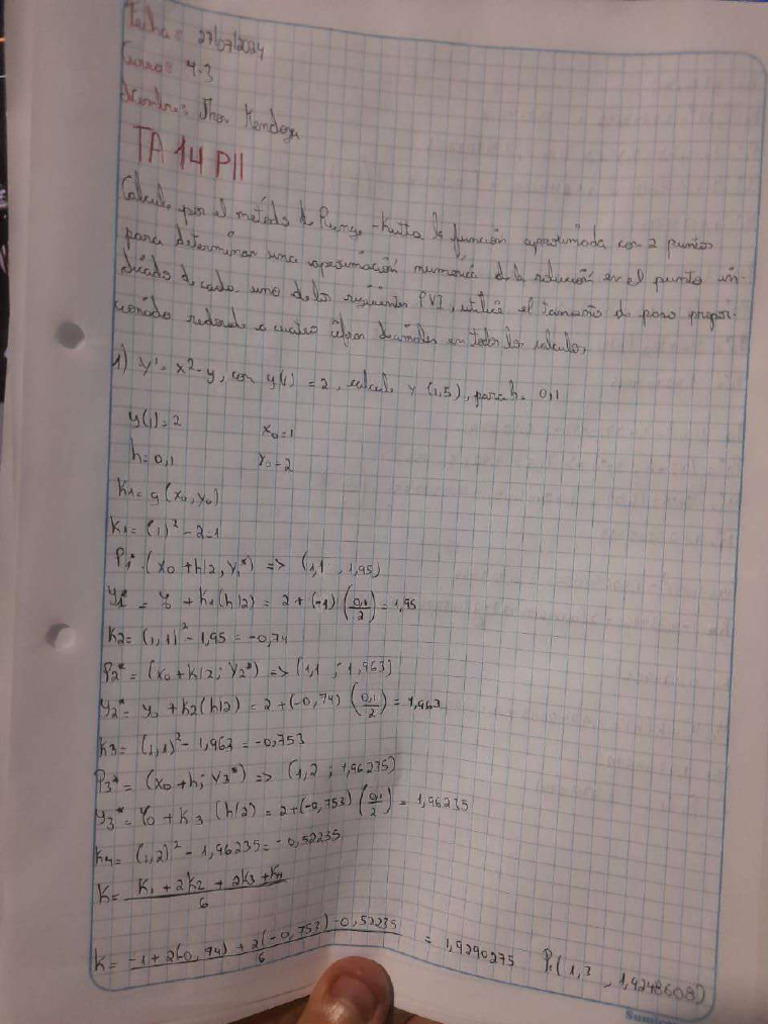 Fecha: 27/07/2024
Curso: 4-3
Nombre: Jhon Mendoza
TA 14 PII
Calcule por el método d Runge-Kutta la función aproximada con 2 puntos
para determinar una aproximación numérica d la solución en el punto in-
dicado d cada uno de los siguientes PVI, utilice el tamaño d paso propor-
cionado redonde a cuatro cifras decimales en todos los calculos.
1) y' = x² - y, con y(1) = 2, calcule y (1,5), para h = 0,1
y(1) = 2 x₀ = 1
h = 0,1 y₀ = 2
K₁ = g (x₀, y₀)
K₁ = (1)² - 2 = 1
P₁* = (x₀ + h/2, y₁*) => (1,1 , 1,95)
y₁* = y₀ + K₁(h/2) = 2 + (-1) (0,1/2) = 1,95
K2 = (1,1)² - 1,95 = -0,74
P₂* = (x₀ + K/2; Y₂*) => (1,1 ; 1,963)
y₂* = y₀ + K₂(h/2) = 2 + (-0,74) (0,1/2) = 1,963
K3 = (1,1)² - 1,963 = -0,753
P₃* = (x₀ + h; Y₃*) => (1,2 ; 1,96235)
y₃* = y₀ + K₃ (h/2) = 2 + (-0,753) (0,1/2) = 1,96235
K₄ = (1,2)² - 1,96235 = -0,52235
K = K₁ + 2K₂ + 2K₃ + K₄ / 6
K = -1 + 2(-0,74) + 2(-0,753) - 0,52235 / 6 = 1,9290275 P₁(1,2 , 1,9248608)